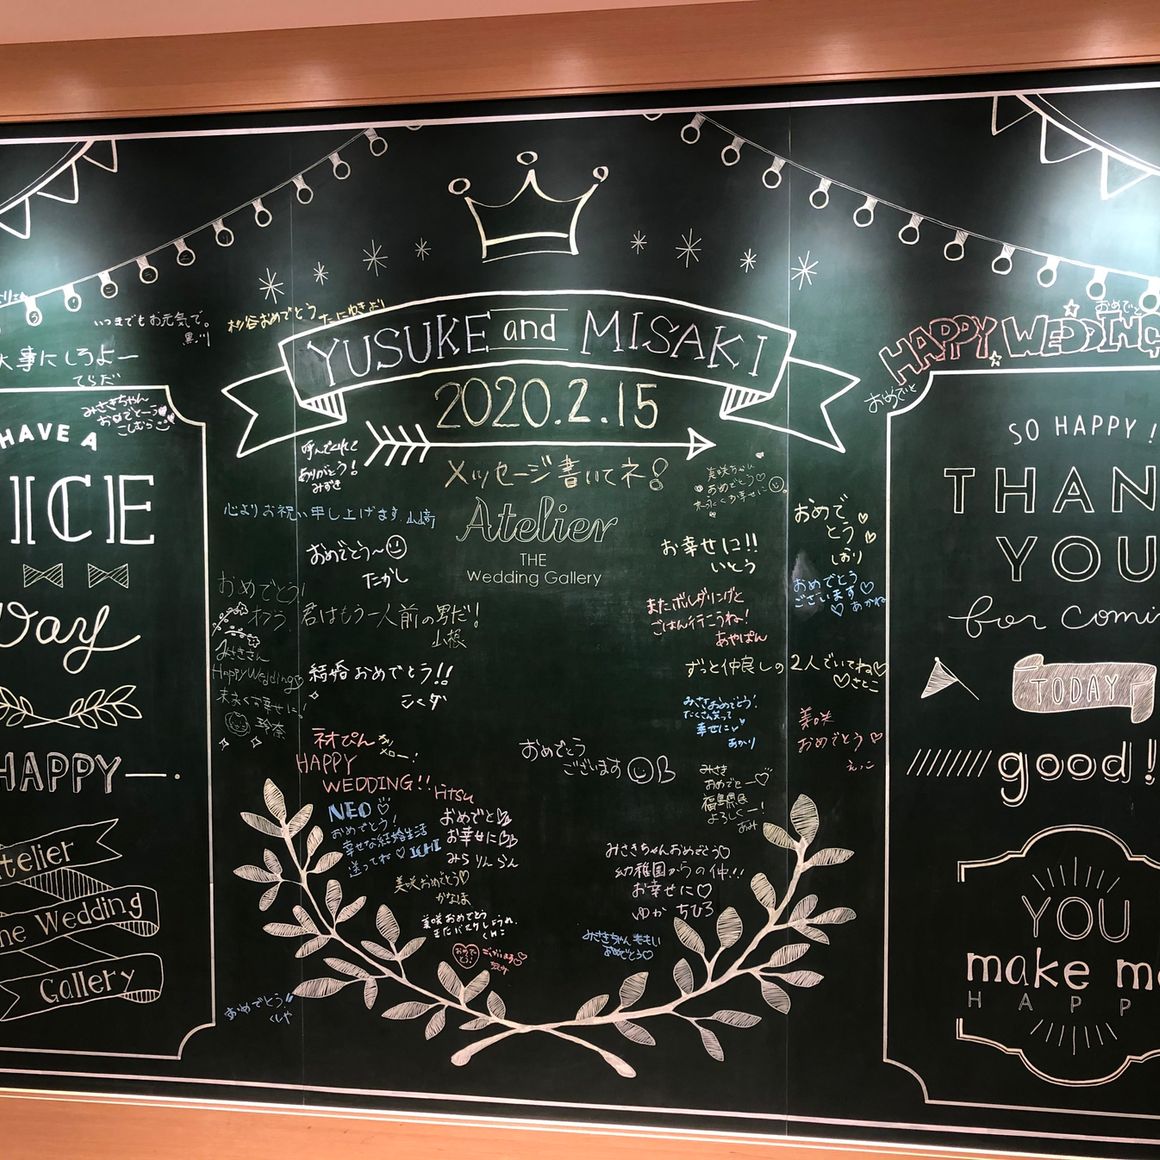 YUSUKE and MISAKI
2020.2.15
メッセージ書いてネ!
Atelier
THE
Wedding Gallery
いつまでもお元気で。
黒川
杉谷おめでとう たにゆきより
大事にしろよー
てらだ
みさきちゃん
おめでとーう
こしむら
HAVE A
NICE
Day
HAPPY
Atelier
The Wedding
Gallery
おめでとう!!
くしや
呼んでくれて
ありがとう!
みずき
心よりお祝い申し上げます. 山崎
おめでとう〜
たかし
おめでとう!
君はもう一人前の男だ!
山根
みさきさん
Happy Wedding
末永くお幸せに!
玲奈
結婚おめでとう!!
ネオぴん
HAPPY
WEDDING!!
Hitsu
NEO
おめでとう!
幸せな結婚生活
送ってね♡ ICHI
おめでと
お幸せに
みらりんらん
美咲おめでとう♡
かなは
美咲おめでとう
おめでとう
ございます B
美咲ちゃん
おめでとう♡
お幸せに!!
いとう
またボルダリングと
ごはん行こうね!
あやぱん
ずっと仲良しの2人でいてね♡
♡さとこ
みさきおめでとう!
たくさん笑って
幸せに
あかり
みさき
おめでとー♡
福島県民
よろしくー!
あみ
みさきちゃんおめでとう♡
幼稚園からの仲!!
お幸せに♡
ゆか ちひろ
みさきちゃん
おめでとう♡
おめで
とう
しおり
おめでとう
ございます♡
♡ あかね
美咲
おめでとう♡
えっこ
おめでと
HAPPY WEDDING
おめでと
SO HAPPY!
THAN
YOU
for comin
TODAY
good!
YOU
make me
HAPP